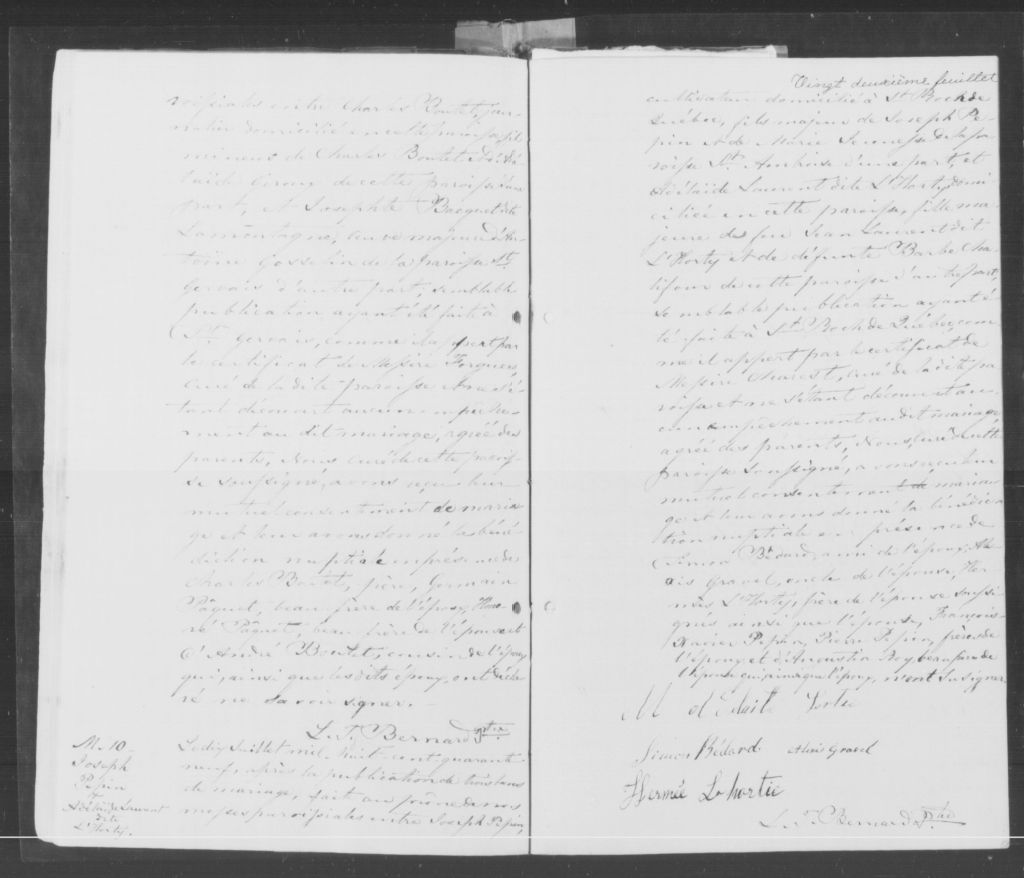 roissiales entre Charles Boutet, jour-
nalier domicilié en cette paroisse, fils
mineur de Charles Boutet et d'Adé-
laïde Giroux de cette paroisse d'une
part, et Josephte Pacquet dite
Lamontagne, veuve majeure d'An-
toine Gosselin de la paroisse St.
Gervais d'autre part; semblable
publication ayant été faite à
St. Gervais, comme il appert par
le certificat de Messire Forgues,
curé de la dite paroisse & ne s'é-
tant découvert aucun empêche-
ment au dit mariage, agréé des
parents, Nous curé de cette parois-
se soussigné, avons reçu leur
mutuel consentement de maria-
ge et leur avons donné la béné-
diction nuptiale en présence de
Charles Boutet, père, Germain
Pâquet, beau-frère de l'époux, Hono-
ré Pâquet, beau-frère de l'épouse et
d'André Boutet, cousin de l'époux
qui, ainsi que les dits époux, ont décla-
ré ne savoir signer.
L. T. Bernard Ptre
M. 10
Joseph
Pepin
&
Adélaïde Laurent
dite
L'Horty.
Le dix Juillet mil huit cent quarante
neuf, après la publication de trois bans
de mariage, fait au prône de nos
messes paroissiales entre Joseph Pepin,
Vingt deuxième feuillet
cultivateur domicilié à St. Roch de
Québec, fils majeur de Joseph Pe-
pin et de Marie de la pa-
roisse St. Ambroise d'une part, et
Adélaïde Laurent dite L'Horty, domi-
ciliée en cette paroisse, fille ma-
jeure de feu Jean Laurent dit
L'Horty et de défunte Barbe Cha-
lifour de cette paroisse d'autre part;
semblable publication ayant é-
té faite à St. Roch de Québec, com-
me il appert par le certificat de
Messire Charest, curé de la dite pa-
roisse et ne s'étant découvert au-
cun empêchement au dit mariage
agréé des parents, Nous, curé de cette
paroisse soussigné, avons reçu leur
mutuel consentement de maria-
ge et leur avons donné la bénédic-
tion nuptiale en présence de
Simon Bédard, ami de l'époux, Ale-
xis Gravel, oncle de l'épouse, Her-
més L'Horty, frère de l'épouse soussi-
gnés ainsi que l'épouse, François-
Xavier Pepin, Pierre Pepin, frères de
l'époux et d'Augustin Roy beau-frère de
l'épouse qui, ainsi que l'époux, n'ont su signer
M Lortie
Simon Bédard Alexis Gravel
Hermée Lohortie
L. T. Bernard Ptre